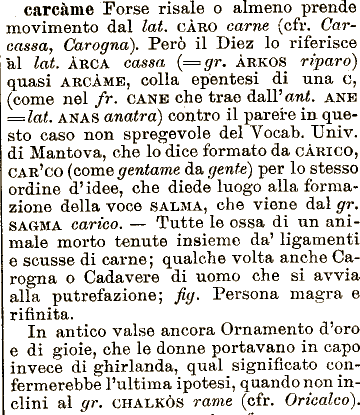 carcàme Forse risale o almeno prende
movimento dal lat. CÀRO carne (cfr. Car-
cassa, Carogna). Però il Diez lo riferisce
àl lat. ÀRCA cassa (=gr. ÀRKOS riparo)
quasi ARCÀME, colla epentesi di una C,
(come nel fr. CANE che trae dall'ant. ANE
=lat. ANAS anatra) contro il parere in que-
sto caso non spregevole del Vocab. Univ.
di Mantova, che lo dice formato da CÀRICO,
CAR'CO (come gentame da gente) per lo stesso
ordine d'idee, che diede luogo alla forma-
zione della voce SALMA, che viene dal gr.
SAGMA carico. — Tutte le ossa di un ani-
male morto tenute insieme da' ligamenti
e scusse di carne; qualche volta anche Ca-
rogna o Cadavere di uomo che si avvia
alla putrefazione; fig. Persona magra e
rifinita.
In antico valse ancora Ornamento d'oro
e di gioie, che le donne portavano in capo
invece di ghirlanda, qual significato con-
fermerebbe l'ultima ipotesi, quando non in-
clini al gr. CHALKÒS rame (cfr. Oricalco).